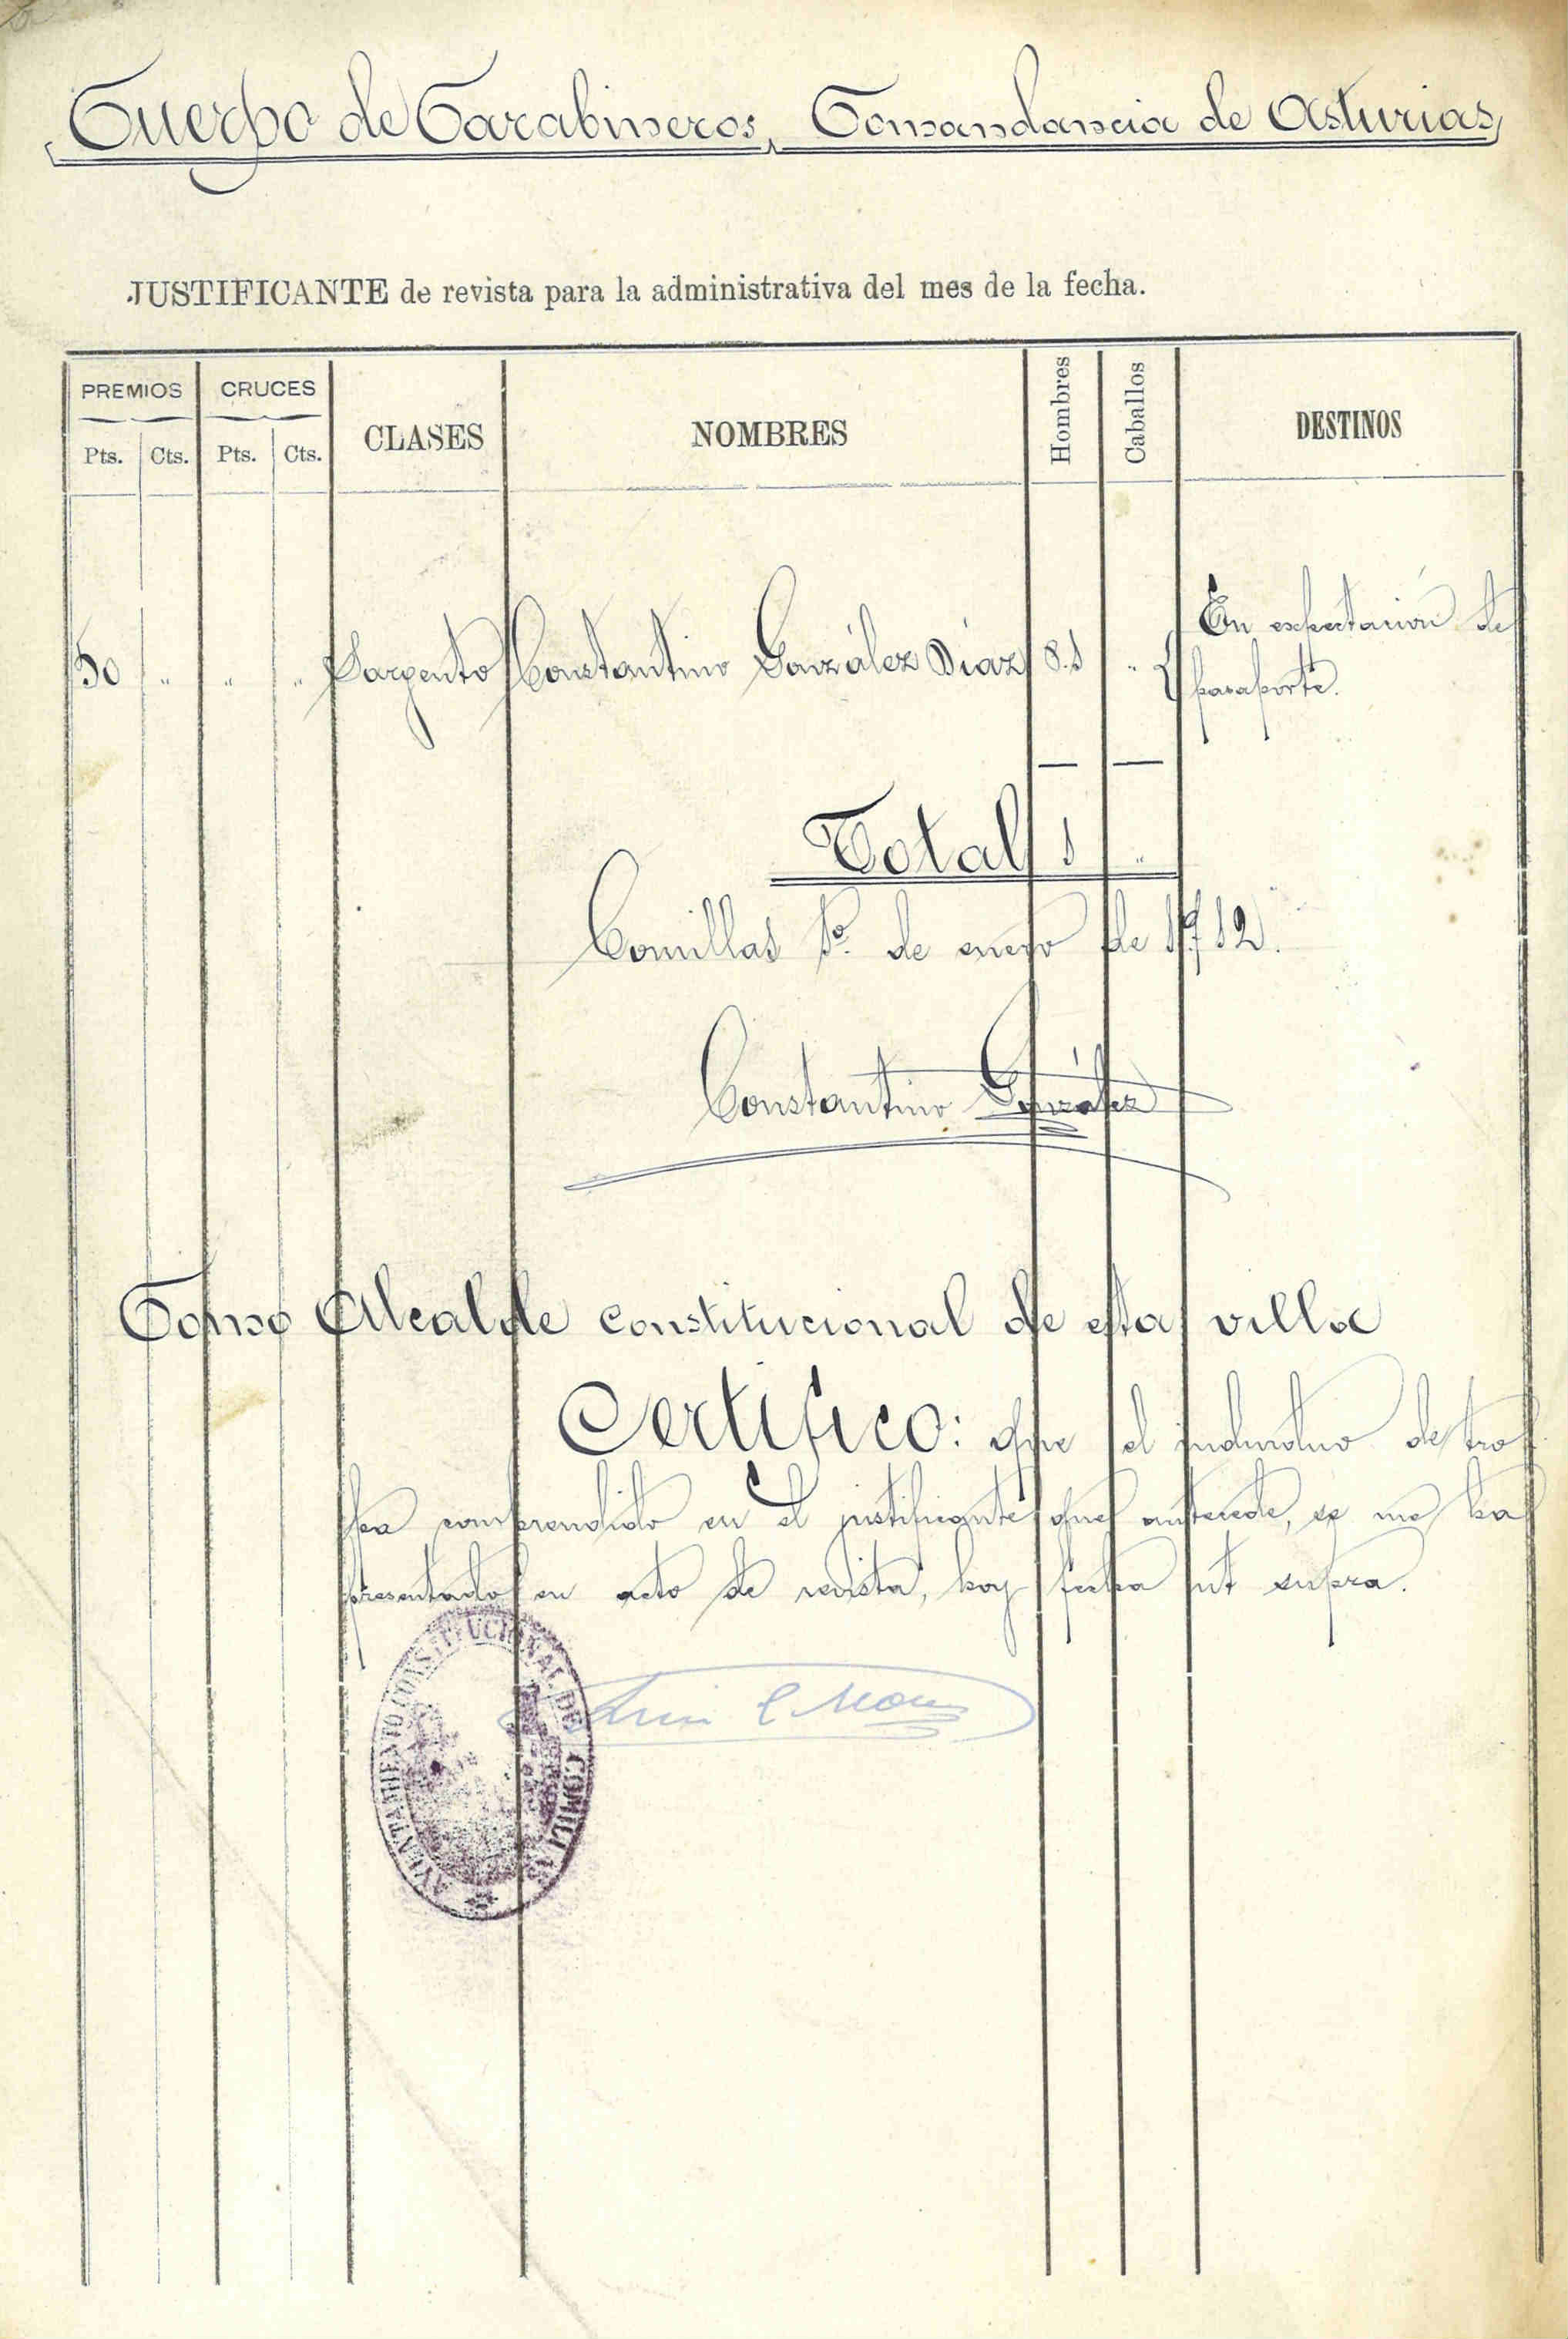 Cuerpo de Carabineros, Comandancia de Asturias,
JUSTIFICANTE de revista para la administrativa del mes de la fecha.
PREMIOS CRUCES CLASES NOMBRES Hombres Caballos DESTINOS
Pts. Cts. Pts. Cts.
30 " " " Sargento Constantino González Díaz " En expectación de
pasaporte.
Total 1 "
Comillas 1º de enero de 1912.
Constantino González
Como Alcalde constitucional de esta villa
Certifico: que el individuo de tro
pa comprendido en el justificante que antecede, se me ha
presentado en acto de revista, hoy fecha ut supra.
AYUNTAMIENTO CONSTITUCIONAL DE COMILLAS